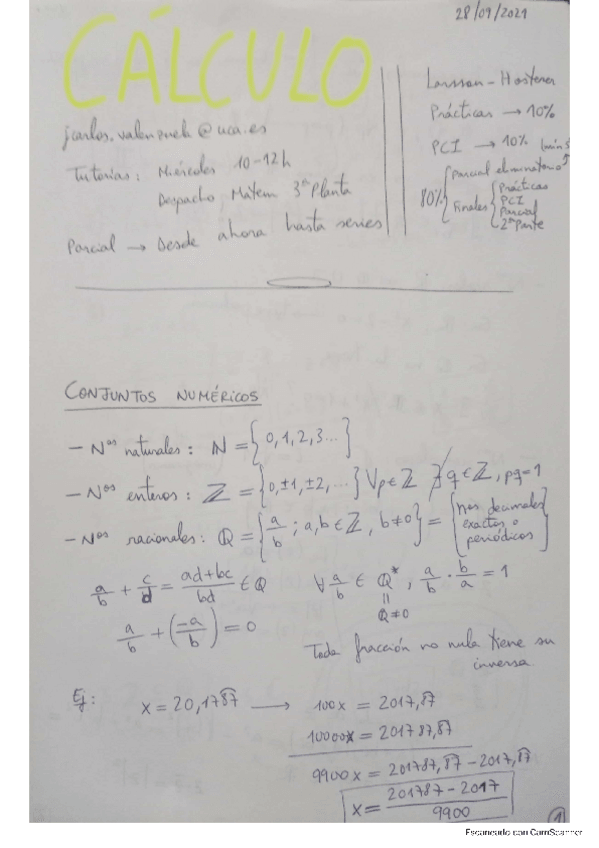 28/09/2021
CÁLCULO
jcarlos.valenzuela@uca.es
Tutorías: Miércoles 10-12h
Despacho Matem 3ª Planta
Parcial → Desde ahora hasta series
Larsson - Hostener
Prácticas → 10%
PCI → 10%
80% { Parcial eliminatorio
Finales { Prácticas
PCI
Parcial
2ª Parte
CONJUNTOS NUMÉRICOS
- Nos naturales: N = {0,1,2,3...}
- Nos enteros: ℤ = {0,±1,±2,...} ∀p∈ℤ ∄q∈ℤ, pq=1
- Nos racionales: ℚ = {a/b ; a,b∈ℤ, b≠0} = {nos decimales exactos o periódicos}
a/b + c/d = (ad+bc)/bd ∈ ℚ ∀ a/b ∈ ℚ*, a/b · b/a = 1
ℚ≠0
a/b + (-a/b) = 0
Toda fracción no nula tiene su
inversa
Ej: x = 20,17͡87 → 100x = 2017,͡87
10000x = 201787,͡87
9900x = 201787,͡87 - 2017,͡87
x = (201787 - 2017)/9900
1
Escaneado con CamScanner